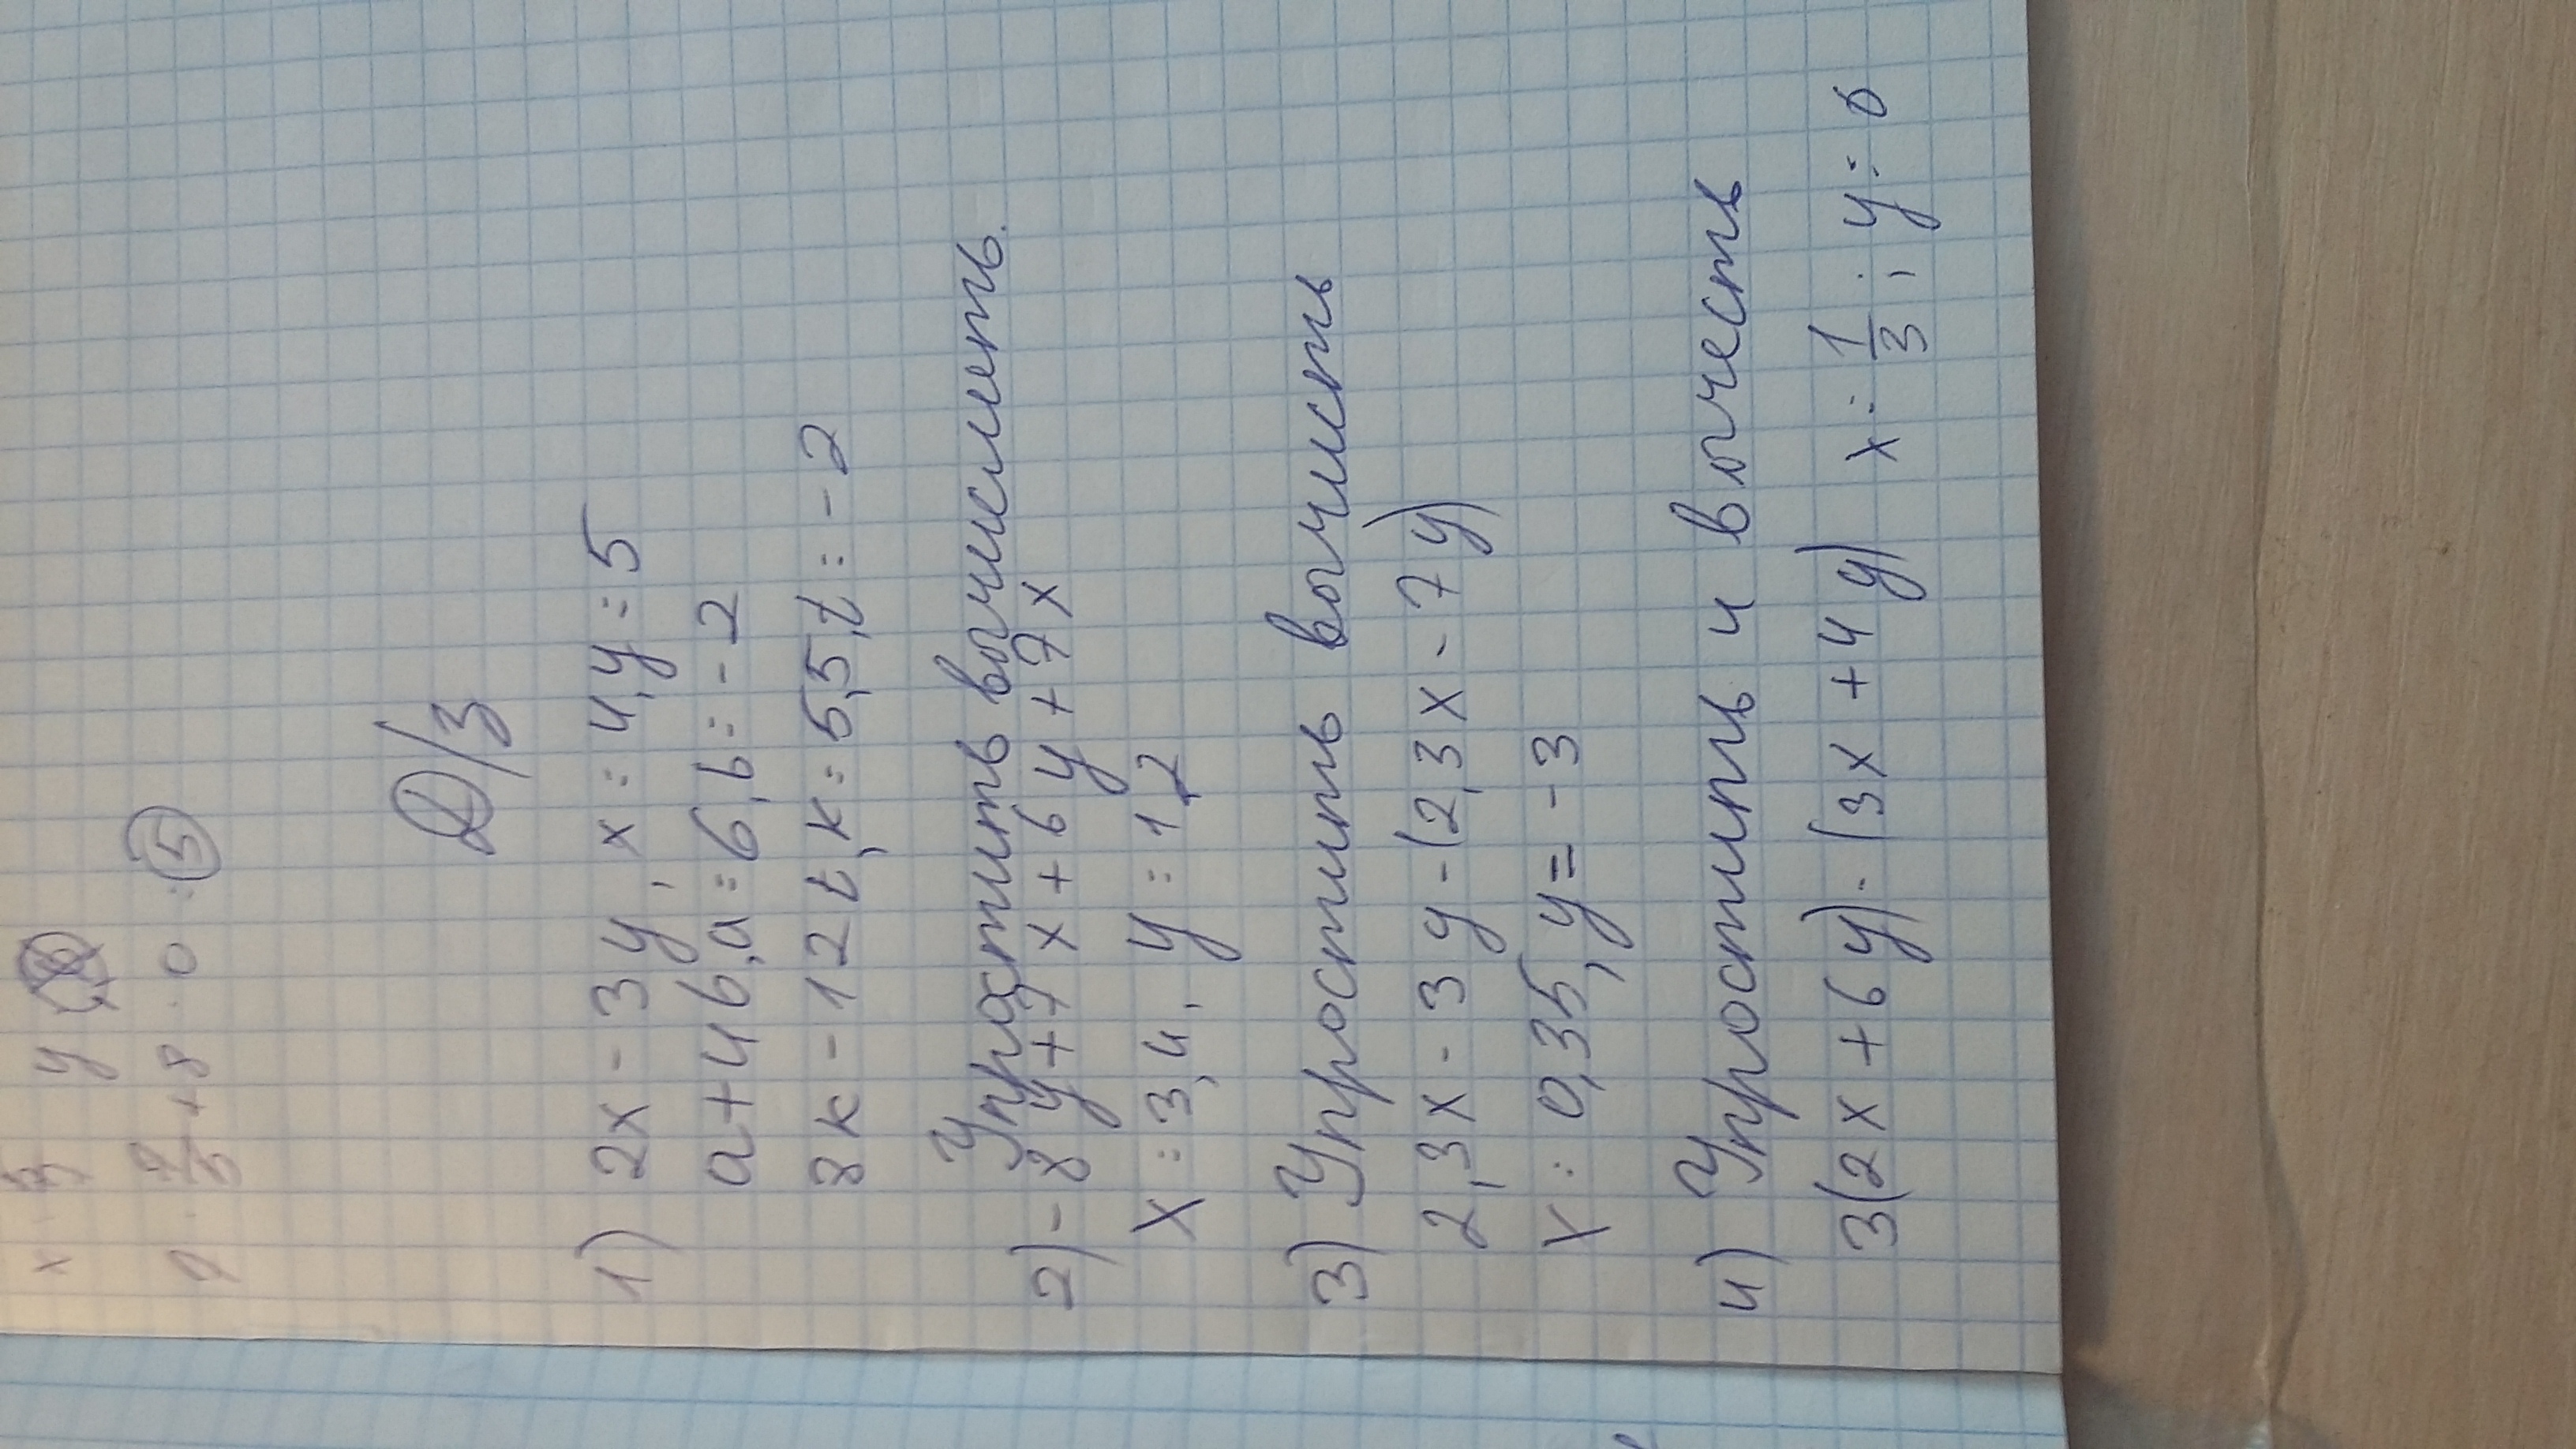 y
+ 8 · 0 = 5
Д/З
1) 2x - 3y, x = 4, y = 5
a + 4b, a = 6, b = -2
8k - 12t, k = 5,5, t = -2
Упростить вычислить.
2) - 8y + 7x + 6y + 7x
x = 3,4, y = 1,2
3) Упростить вычисть
2,3x - 3y - (2,3x - 7y)
x = 0,35, y = -3
4) Упростить и вычесть
3(2x + 6y) - (3x + 4y) x = 1/3; y = 0